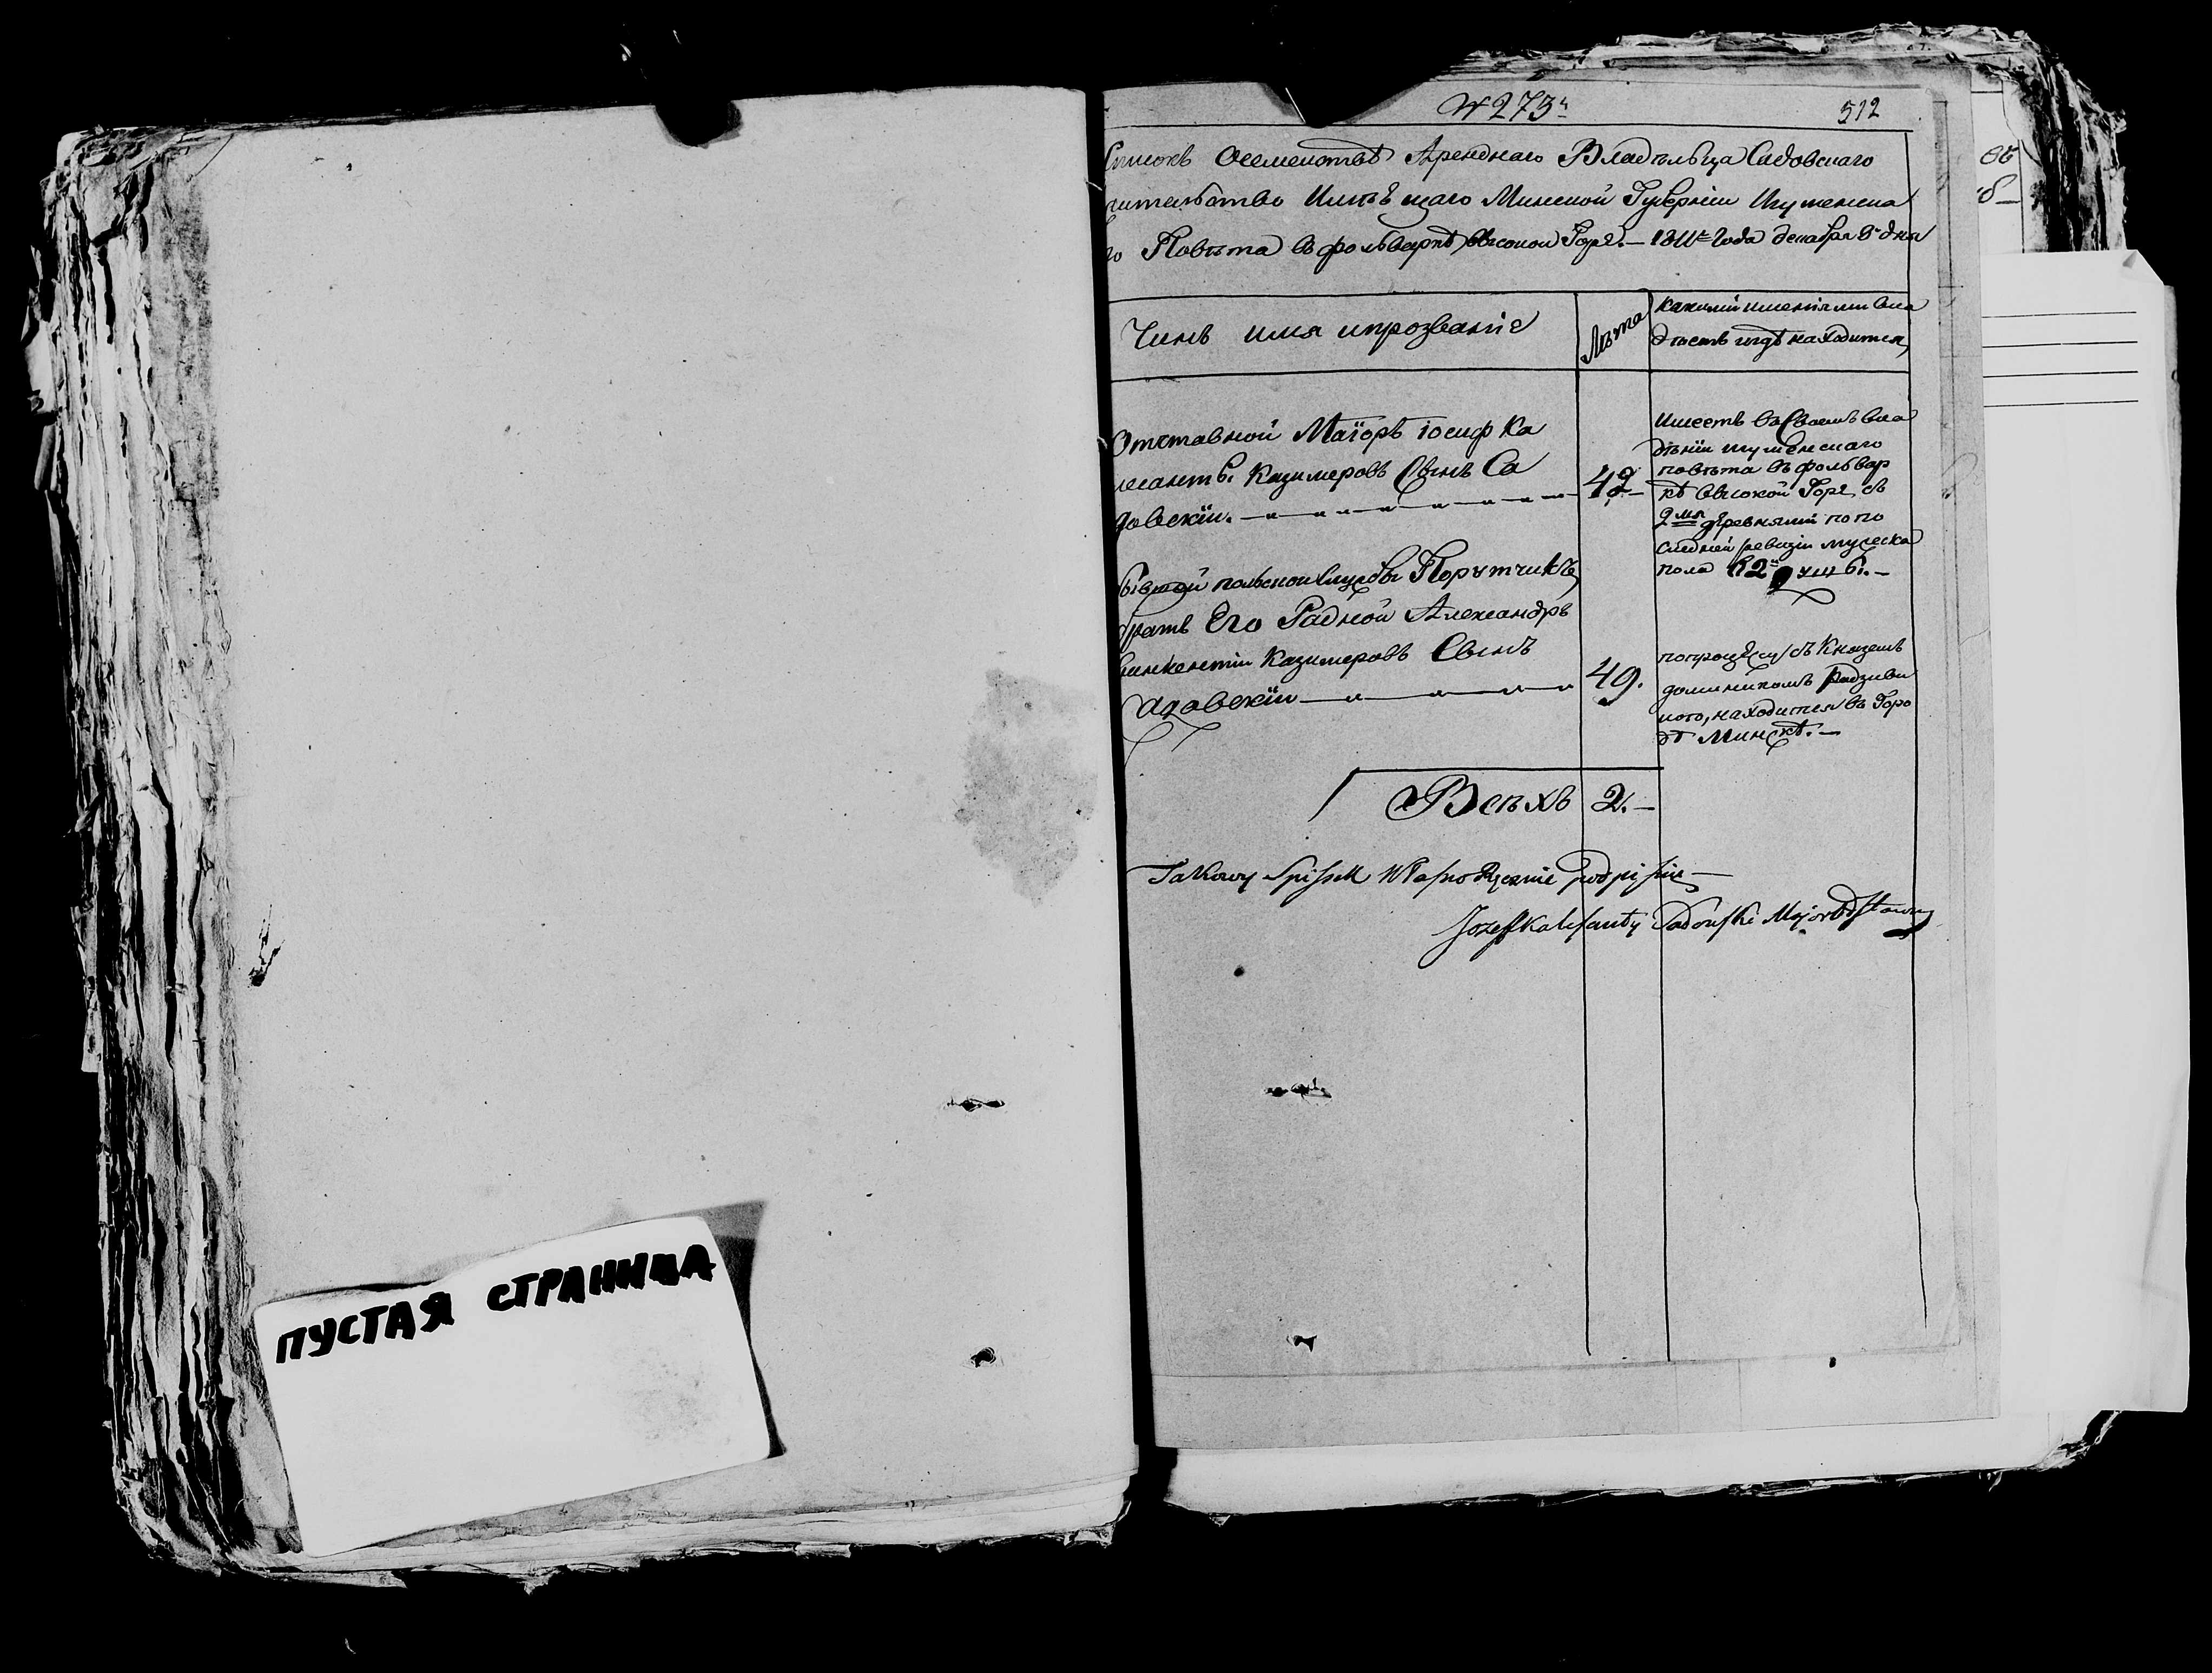 ПУСТАЯ СТРАНИЦА
№ 273й
512
Списокъ осемействѣ Аренднаго Владѣльца Садовскаго
жительство Имѣющаго Минской Губерніи Игуменска
го Повѣта въ фольваркѣ высокой Горѣ.— 1811го Года декабря 8 дня
Чинъ имя ипрозваніе
Лѣта
какими имениями вла
дѣетъ игдѣ находится
Отставной Маіоръ іосиф Ка
ласантъ. Казимеровъ Сынъ Са
довскіи.
42
Имеетъ въ Своемъ вла
дѣніи игуменскаго
повѣта въ фольвар
кѣ высокой Горѣ съ
2мя деревнями по по
следней ревизіи мужска
пола душъ.—
бывшей польской Службы Порутчикъ
братъ Его Радной Александръ
винкентіи Казимеровъ Сынъ
Садовскіи
49.
съ Княземъ
доминикомъ Радзиви
находится въ Горо
дѣ Минскѣ.—
Всѣхъ 2.—
Takowy Spissek Własno Ręcznie podpisuię
Jozef Kalasanty Sadowski Major Odstawny